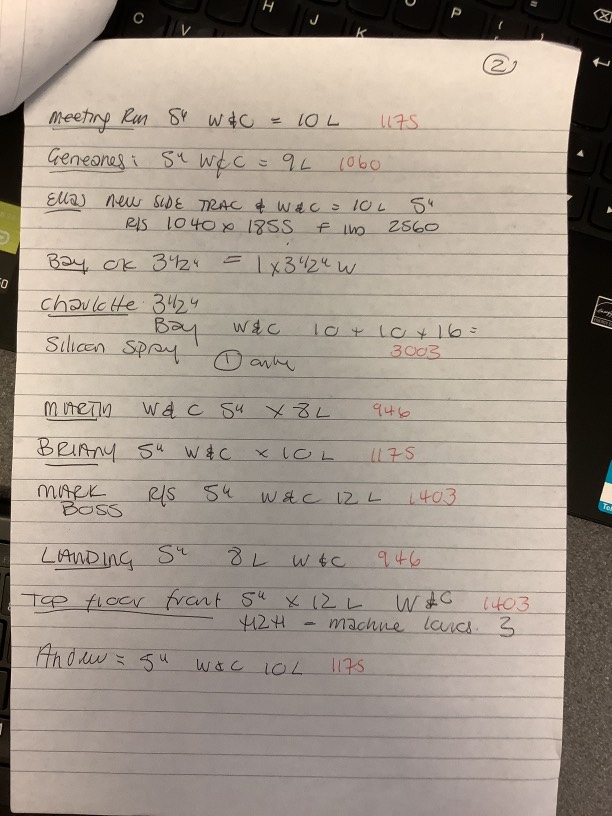 2
Meeting Rm 5" W&C = 10 L 1175
Geneones: 5" W&C = 9L 1060
Ellas new SIDE TRAC & W&C = 10L 5"
R/S 1040 x 1855 F 2560
Bay OK 3 1/2" = 1 x 3 1/2" W
Charlotte 3 1/2"
Bay W&C 10 + 10 + 16 =
Silicon Spray ① only 3003
MARTIN W&C 5" x 8L 946
BRIANY 5" W&C x 10L 1175
MARK R/S 5" W&C 12L 1403
BOSS
LANDING 5" 8L W&C 946
Top floor front 5" x 12L W&C 1403
- machine 3
Andrew = 5" W&C 10L 1175